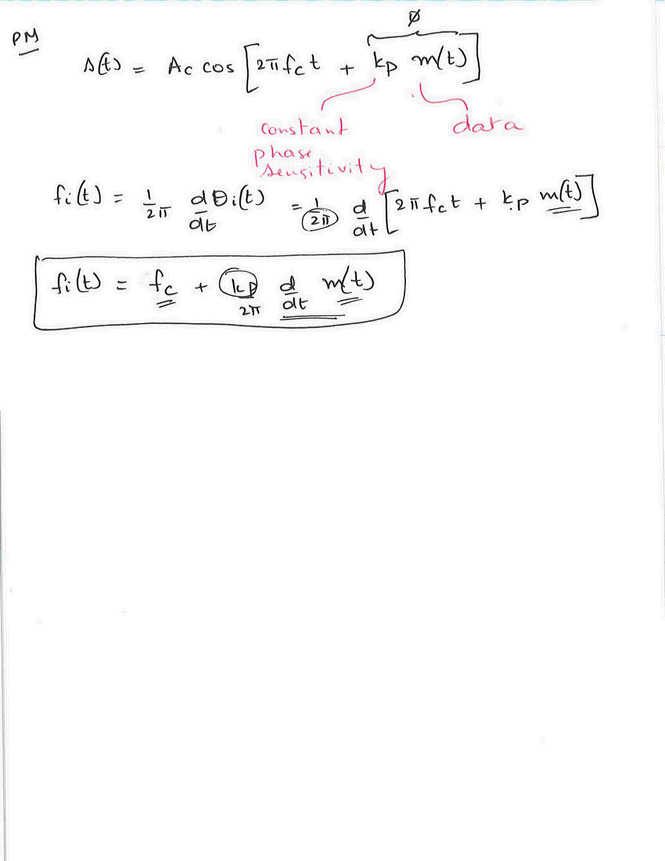 PM
φ
s(t) = Ac cos [2πfct + kp m(t)]
constant phase sensitivity
data
fi(t) = 1/2π dθi(t)/dt = 1/2π d/dt [2πfct + kp m(t)]
fi(t) = fc + kp/2π d/dt m(t)